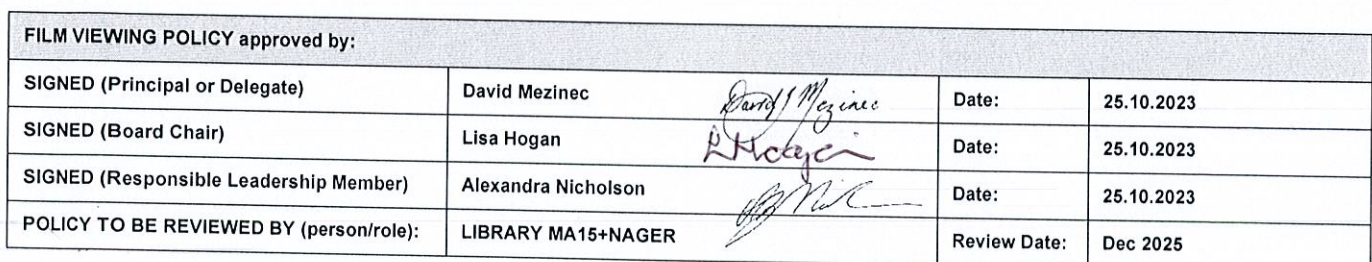 FILM VIEWING POLICY approved by:
SIGNED (Principal or Delegate) David Mezinec David J Mezinec Date: 25.10.2023
SIGNED (Board Chair) Lisa Hogan LHogan Date: 25.10.2023
SIGNED (Responsible Leadership Member) Alexandra Nicholson Date: 25.10.2023
POLICY TO BE REVIEWED BY (person/role): LIBRARY MA15+NAGER Review Date: Dec 2025